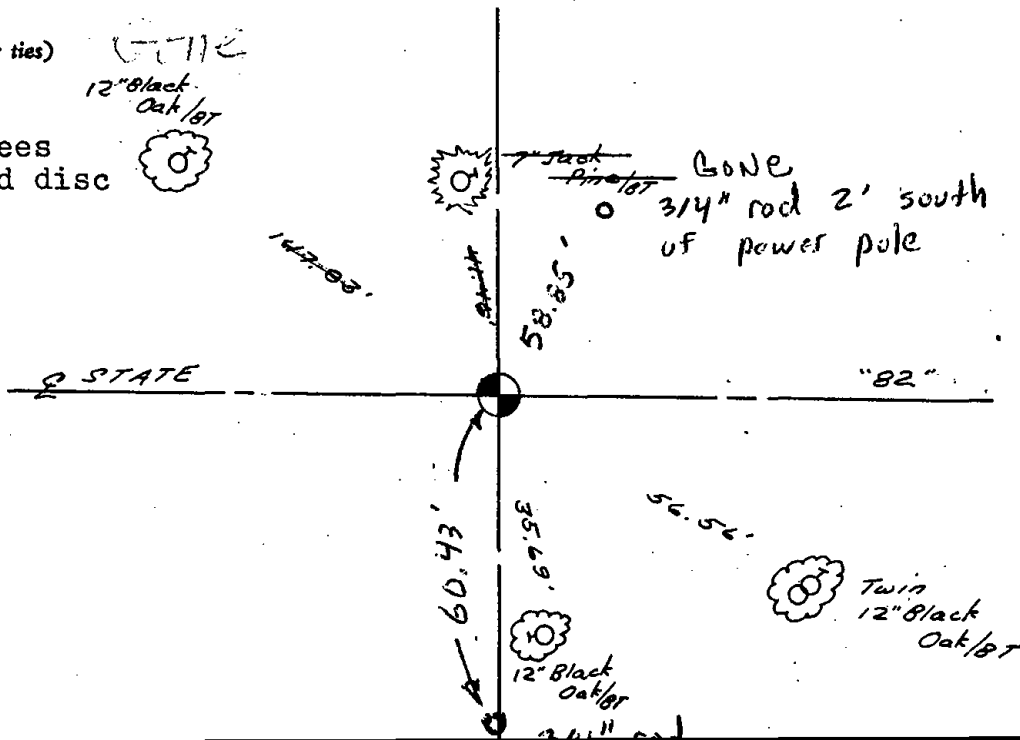 ties)
Gone
12" Black
Oak/BT
ees
d disc
7" Jack
Pine/BT
GONE
3/4" rod 2' south
of power pole
147.03'
58.85'
℄ STATE
"82"
60.43'
35.69'
56.56'
Twin
12" Black
Oak/BT
12" Black
Oak/BT
3/4" rod